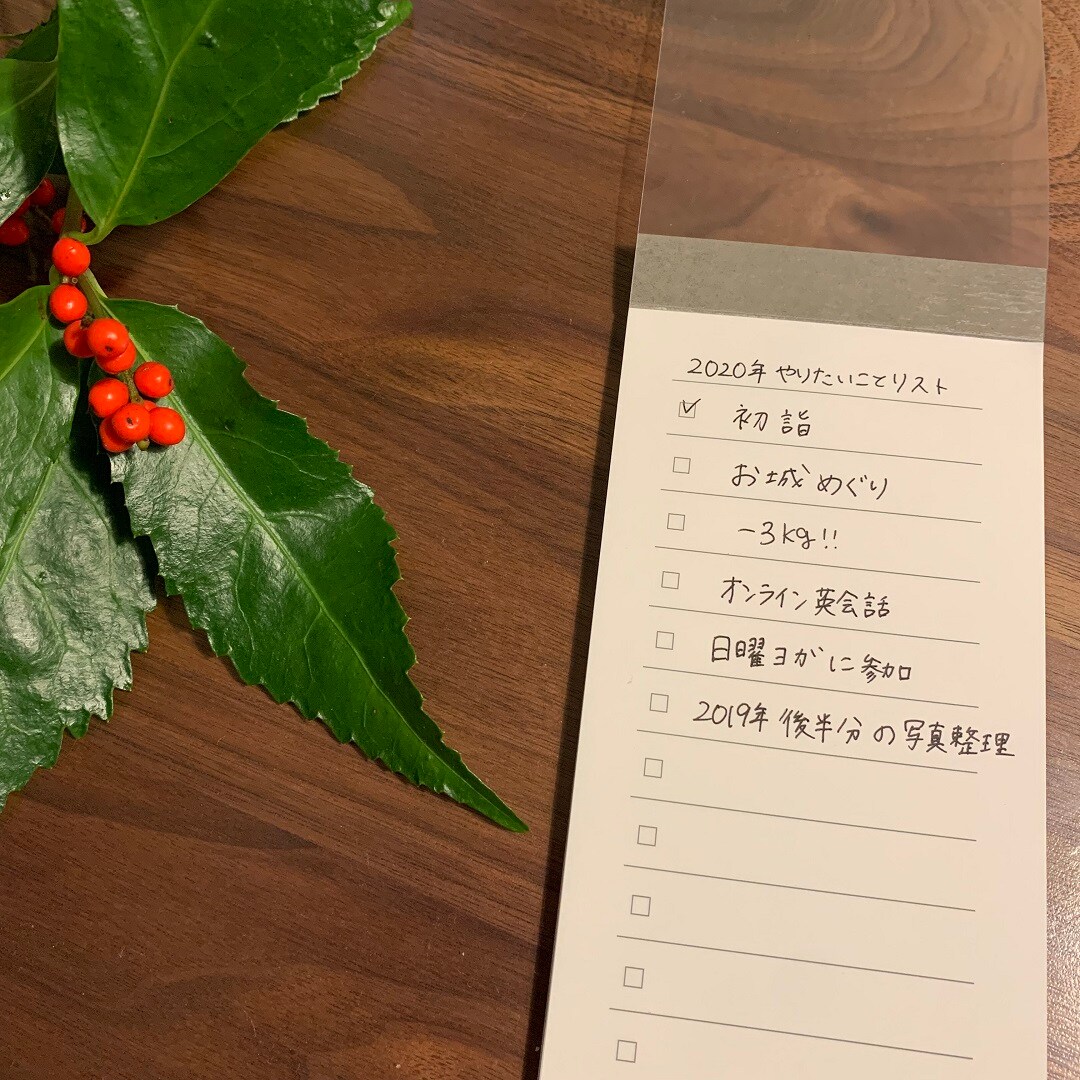 2020年 やりたいことリスト
初詣
お城めぐり
-3kg!!
オンライン英会話
日曜ヨガに参加
2019年 後半分の写真整理